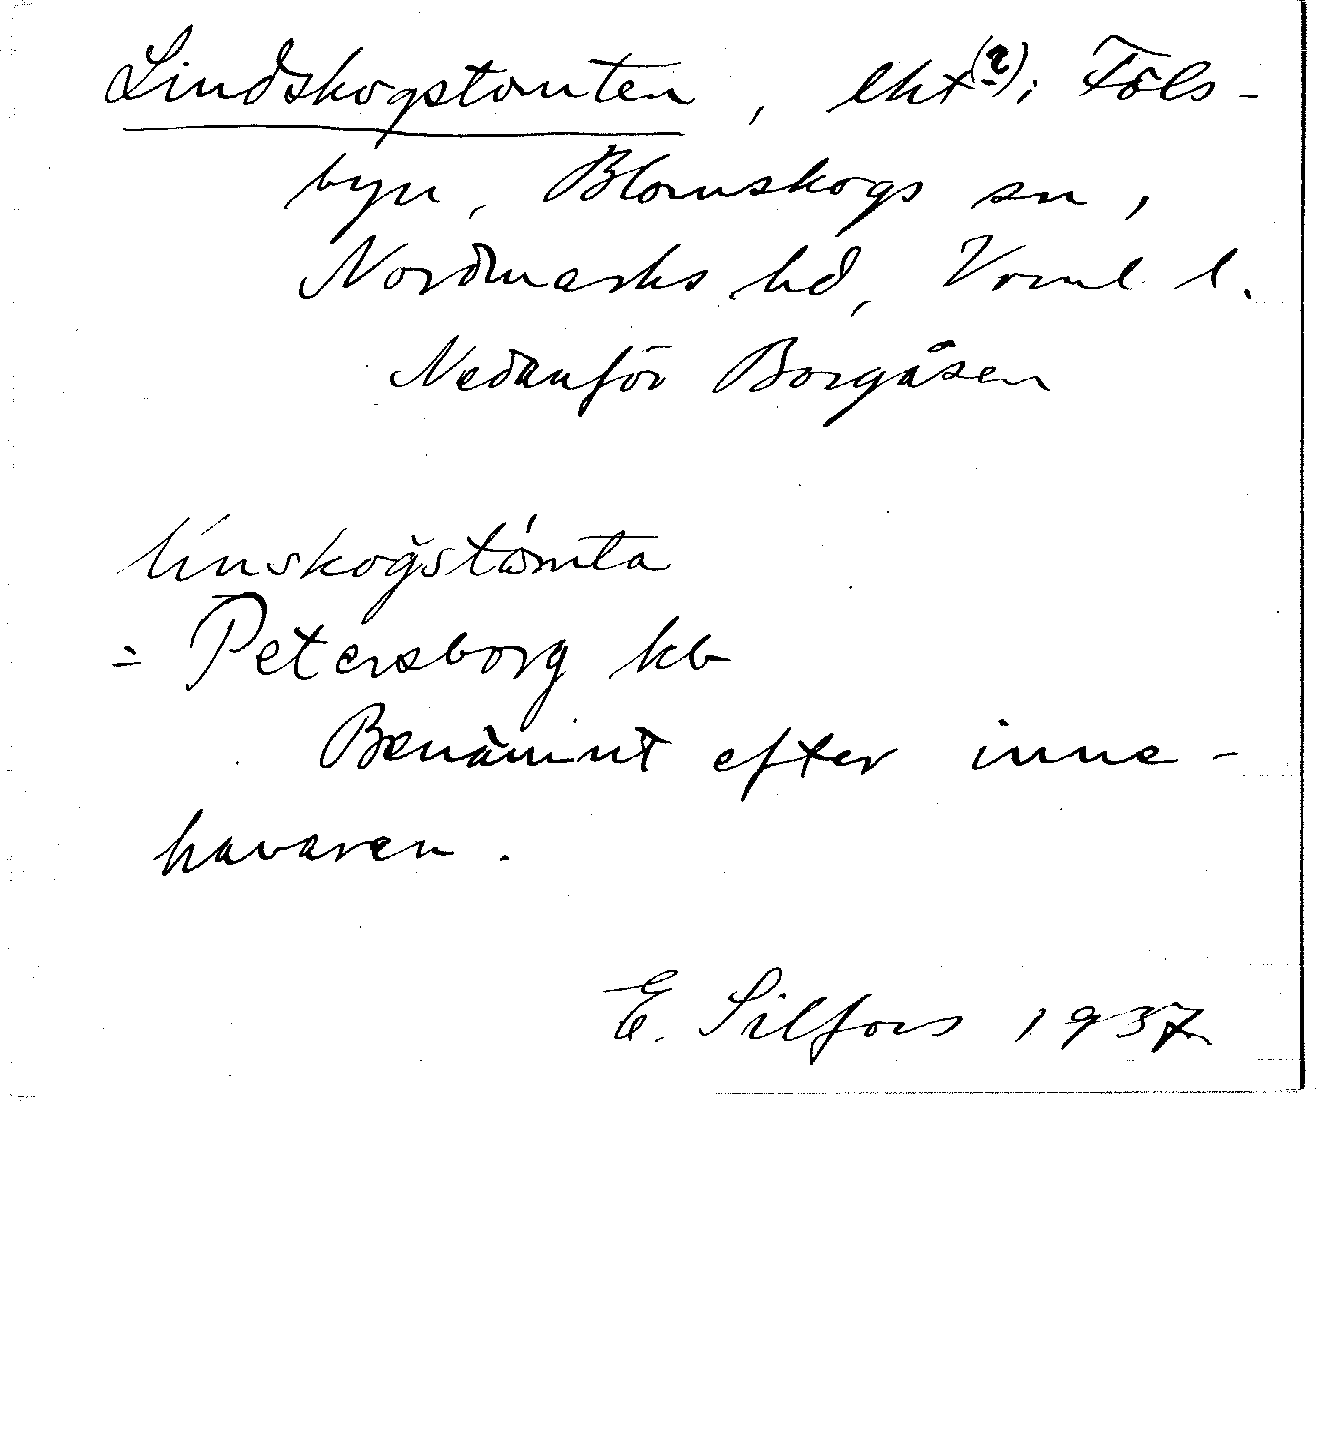 Lindskogstomten, lht(?) i Föls-
byn, Blomskogs sn,
Nordmarks hd, Vrml. l.
Nedanför Borgåsen
línskog̀stómta
= Petersborg kb
Benämnt efter inne-
havaren.
E. Silfors 1937